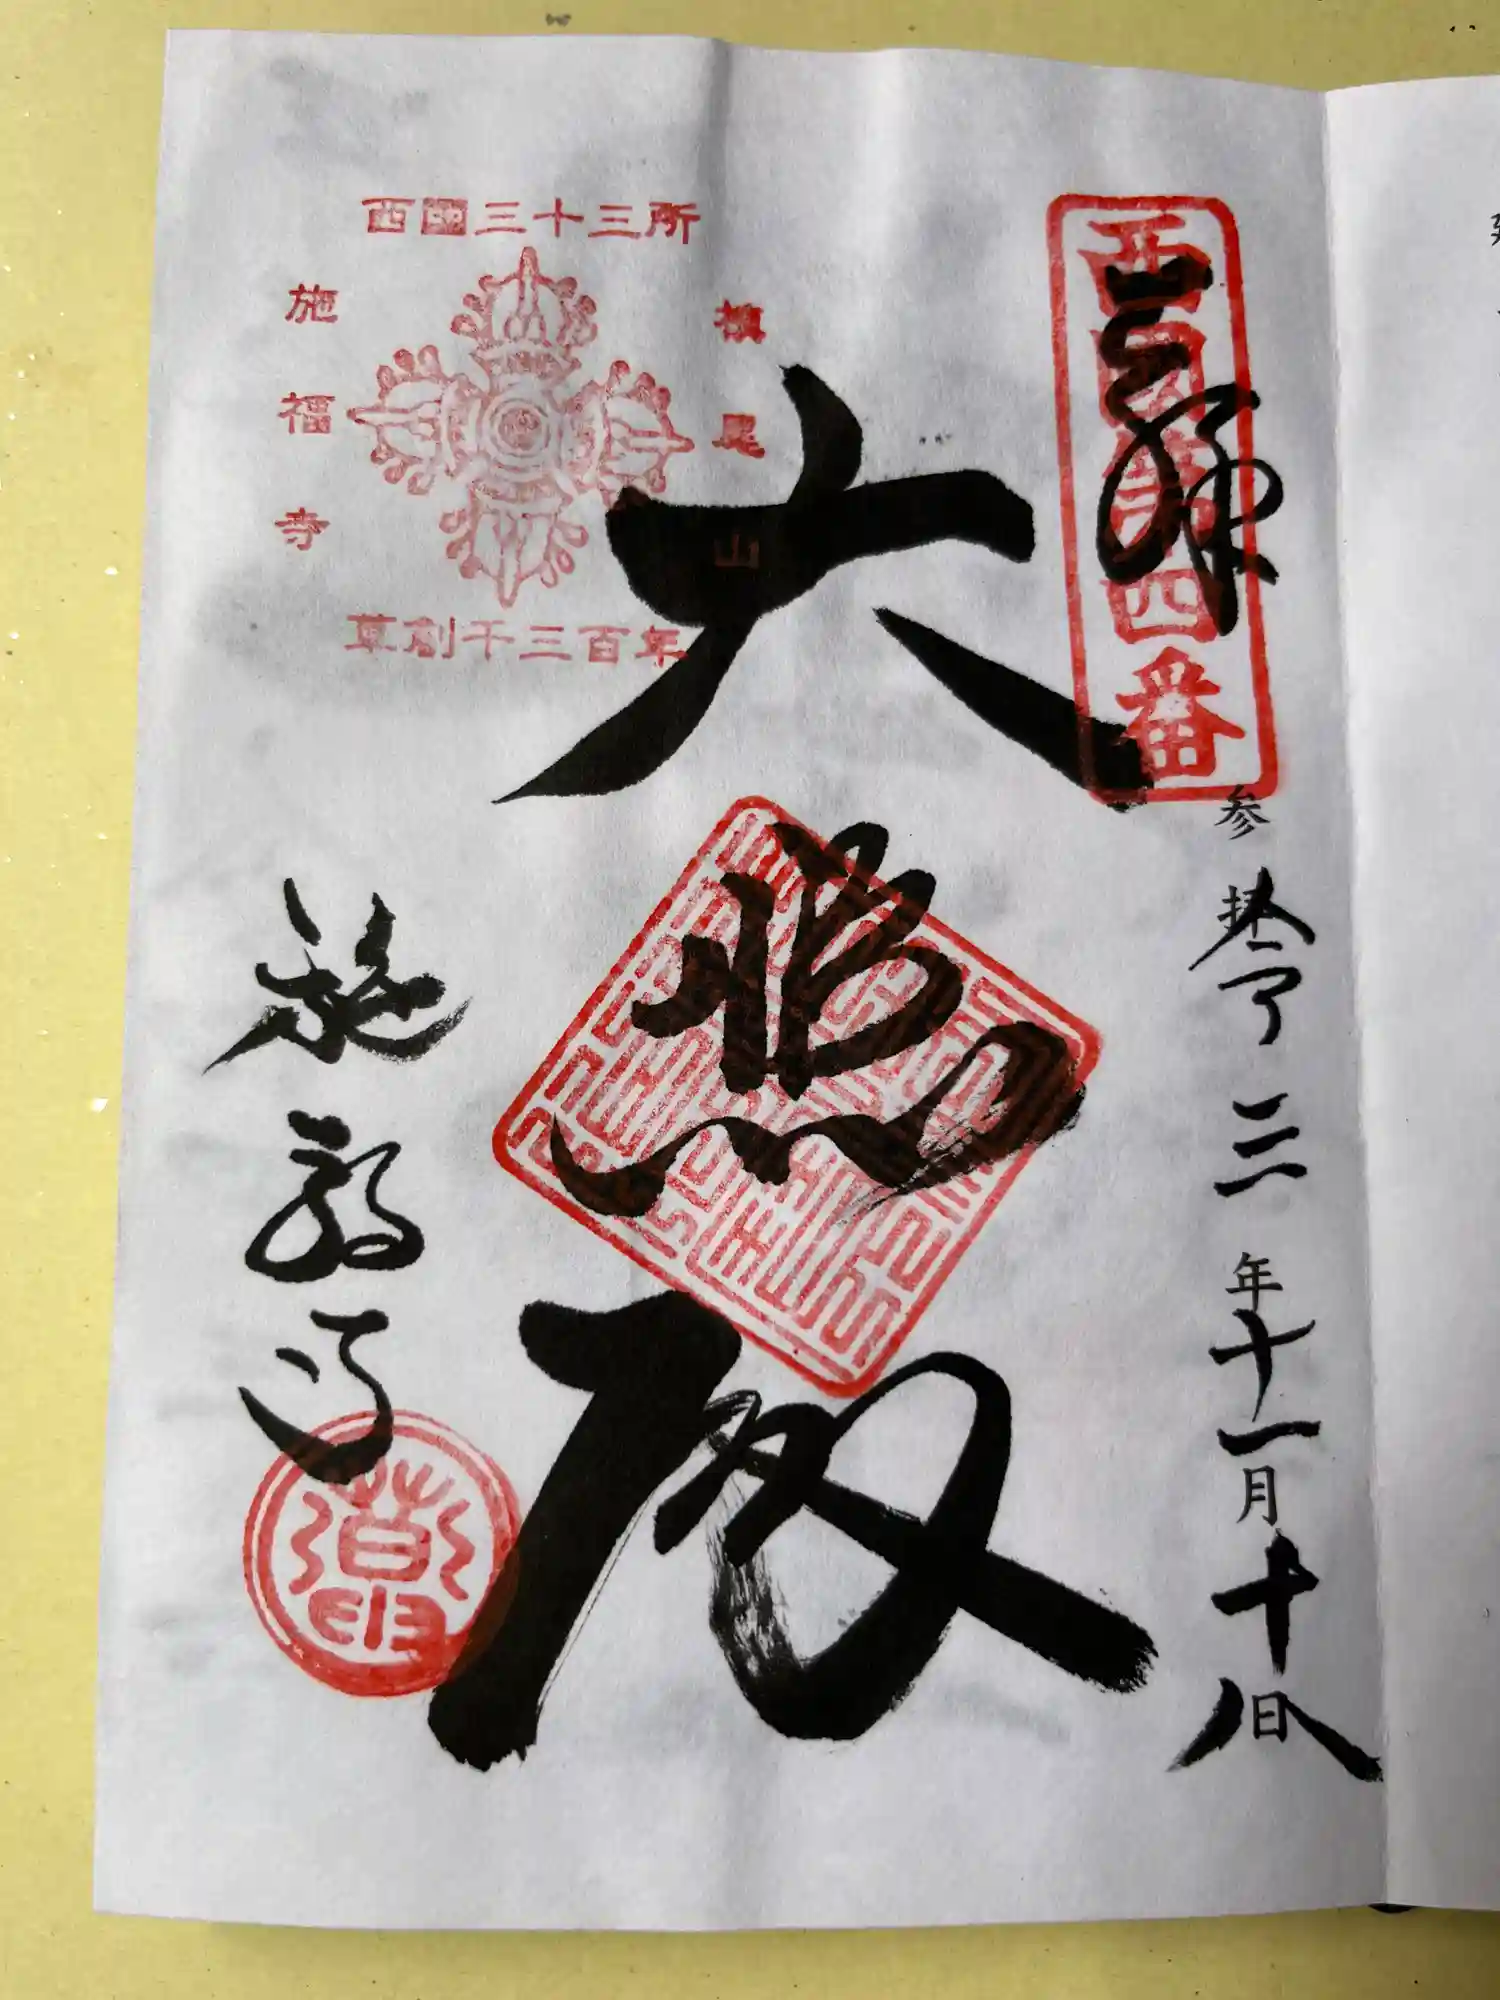 奉拝
西国第四番
参拝 令三年十一月十八日
大悲殿
西國三十三所
槇尾山
施福寺
草創千三百年
施福寺
印